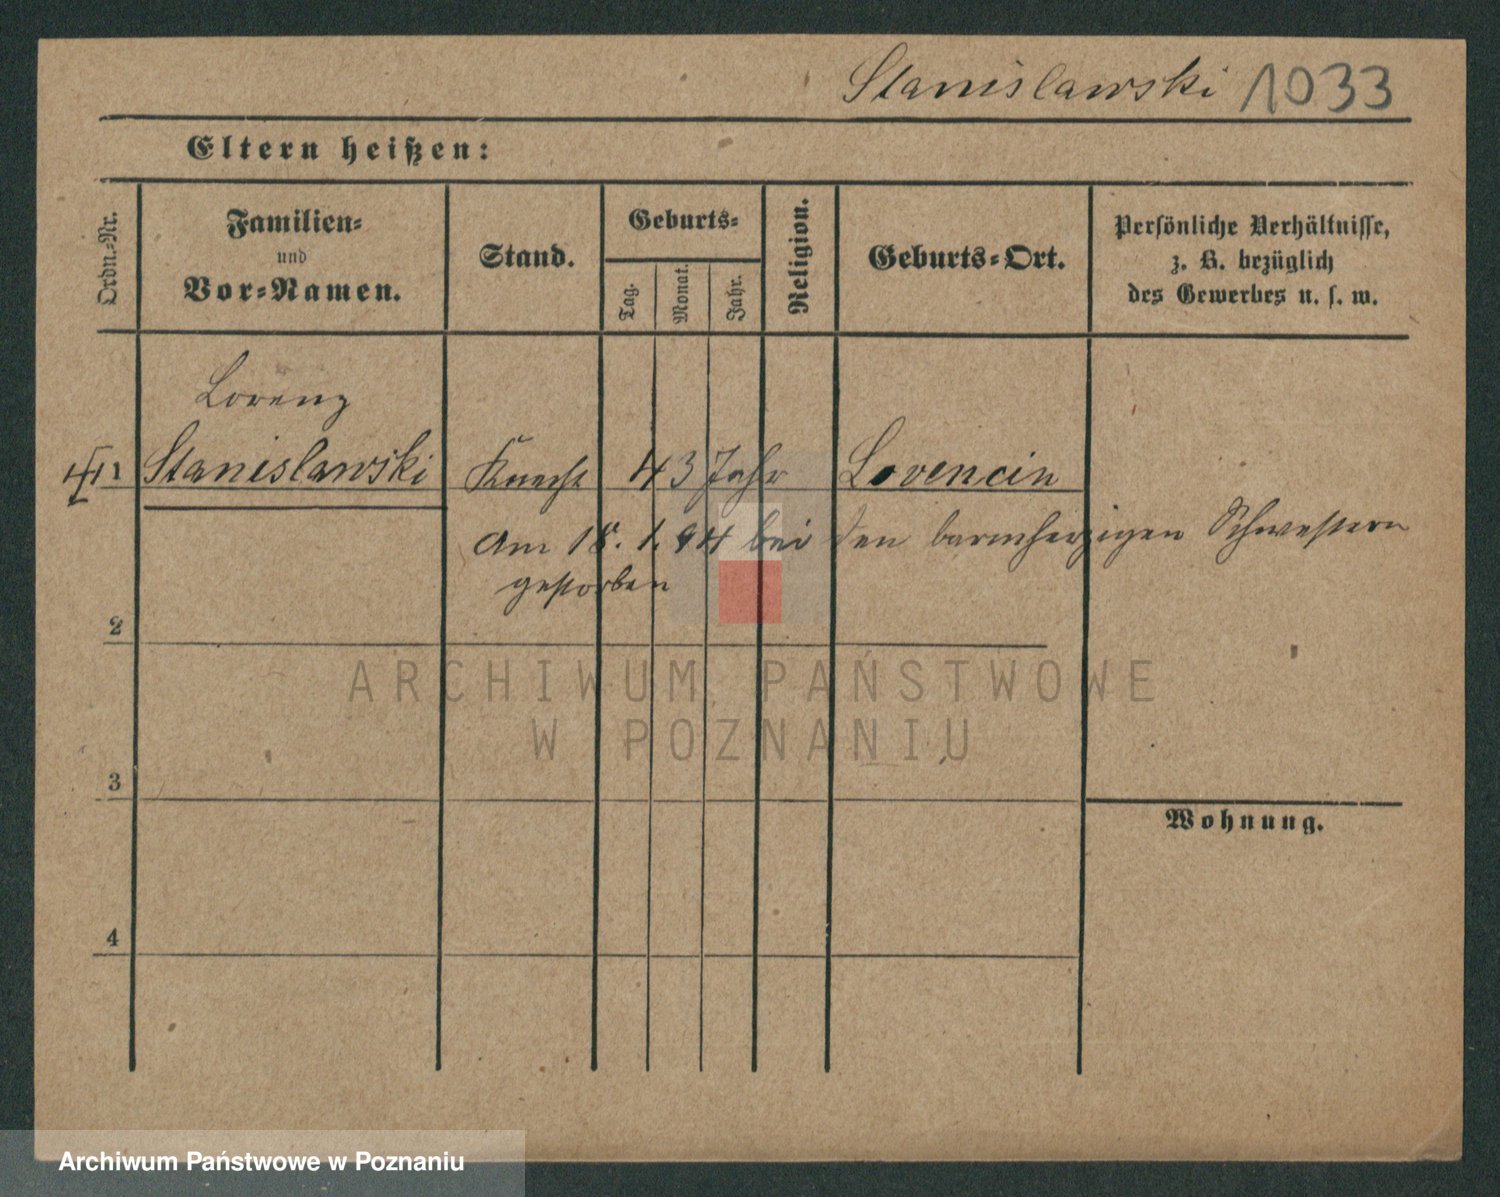 Stanislawski 1033
Eltern heißen:
Ordn.-Nr.
Familien-
und
Vor-Namen.
Stand.
Geburts-
Tag.
Monat.
Jahr.
Religion.
Geburts-Ort.
Persönliche Verhältnisse,
z. B. bezüglich
des Gewerbes u. s. w.
Lorenz
1 Stanislawski Knecht 43 Jahr Lovencin
am 18. 1. 94 bei den barmherzigen Schwestern
gestorben
2
ARCHIWUM PAŃSTWOWE
W POZNANIU
3
Wohnung.
4
Archiwum Państwowe w Poznaniu